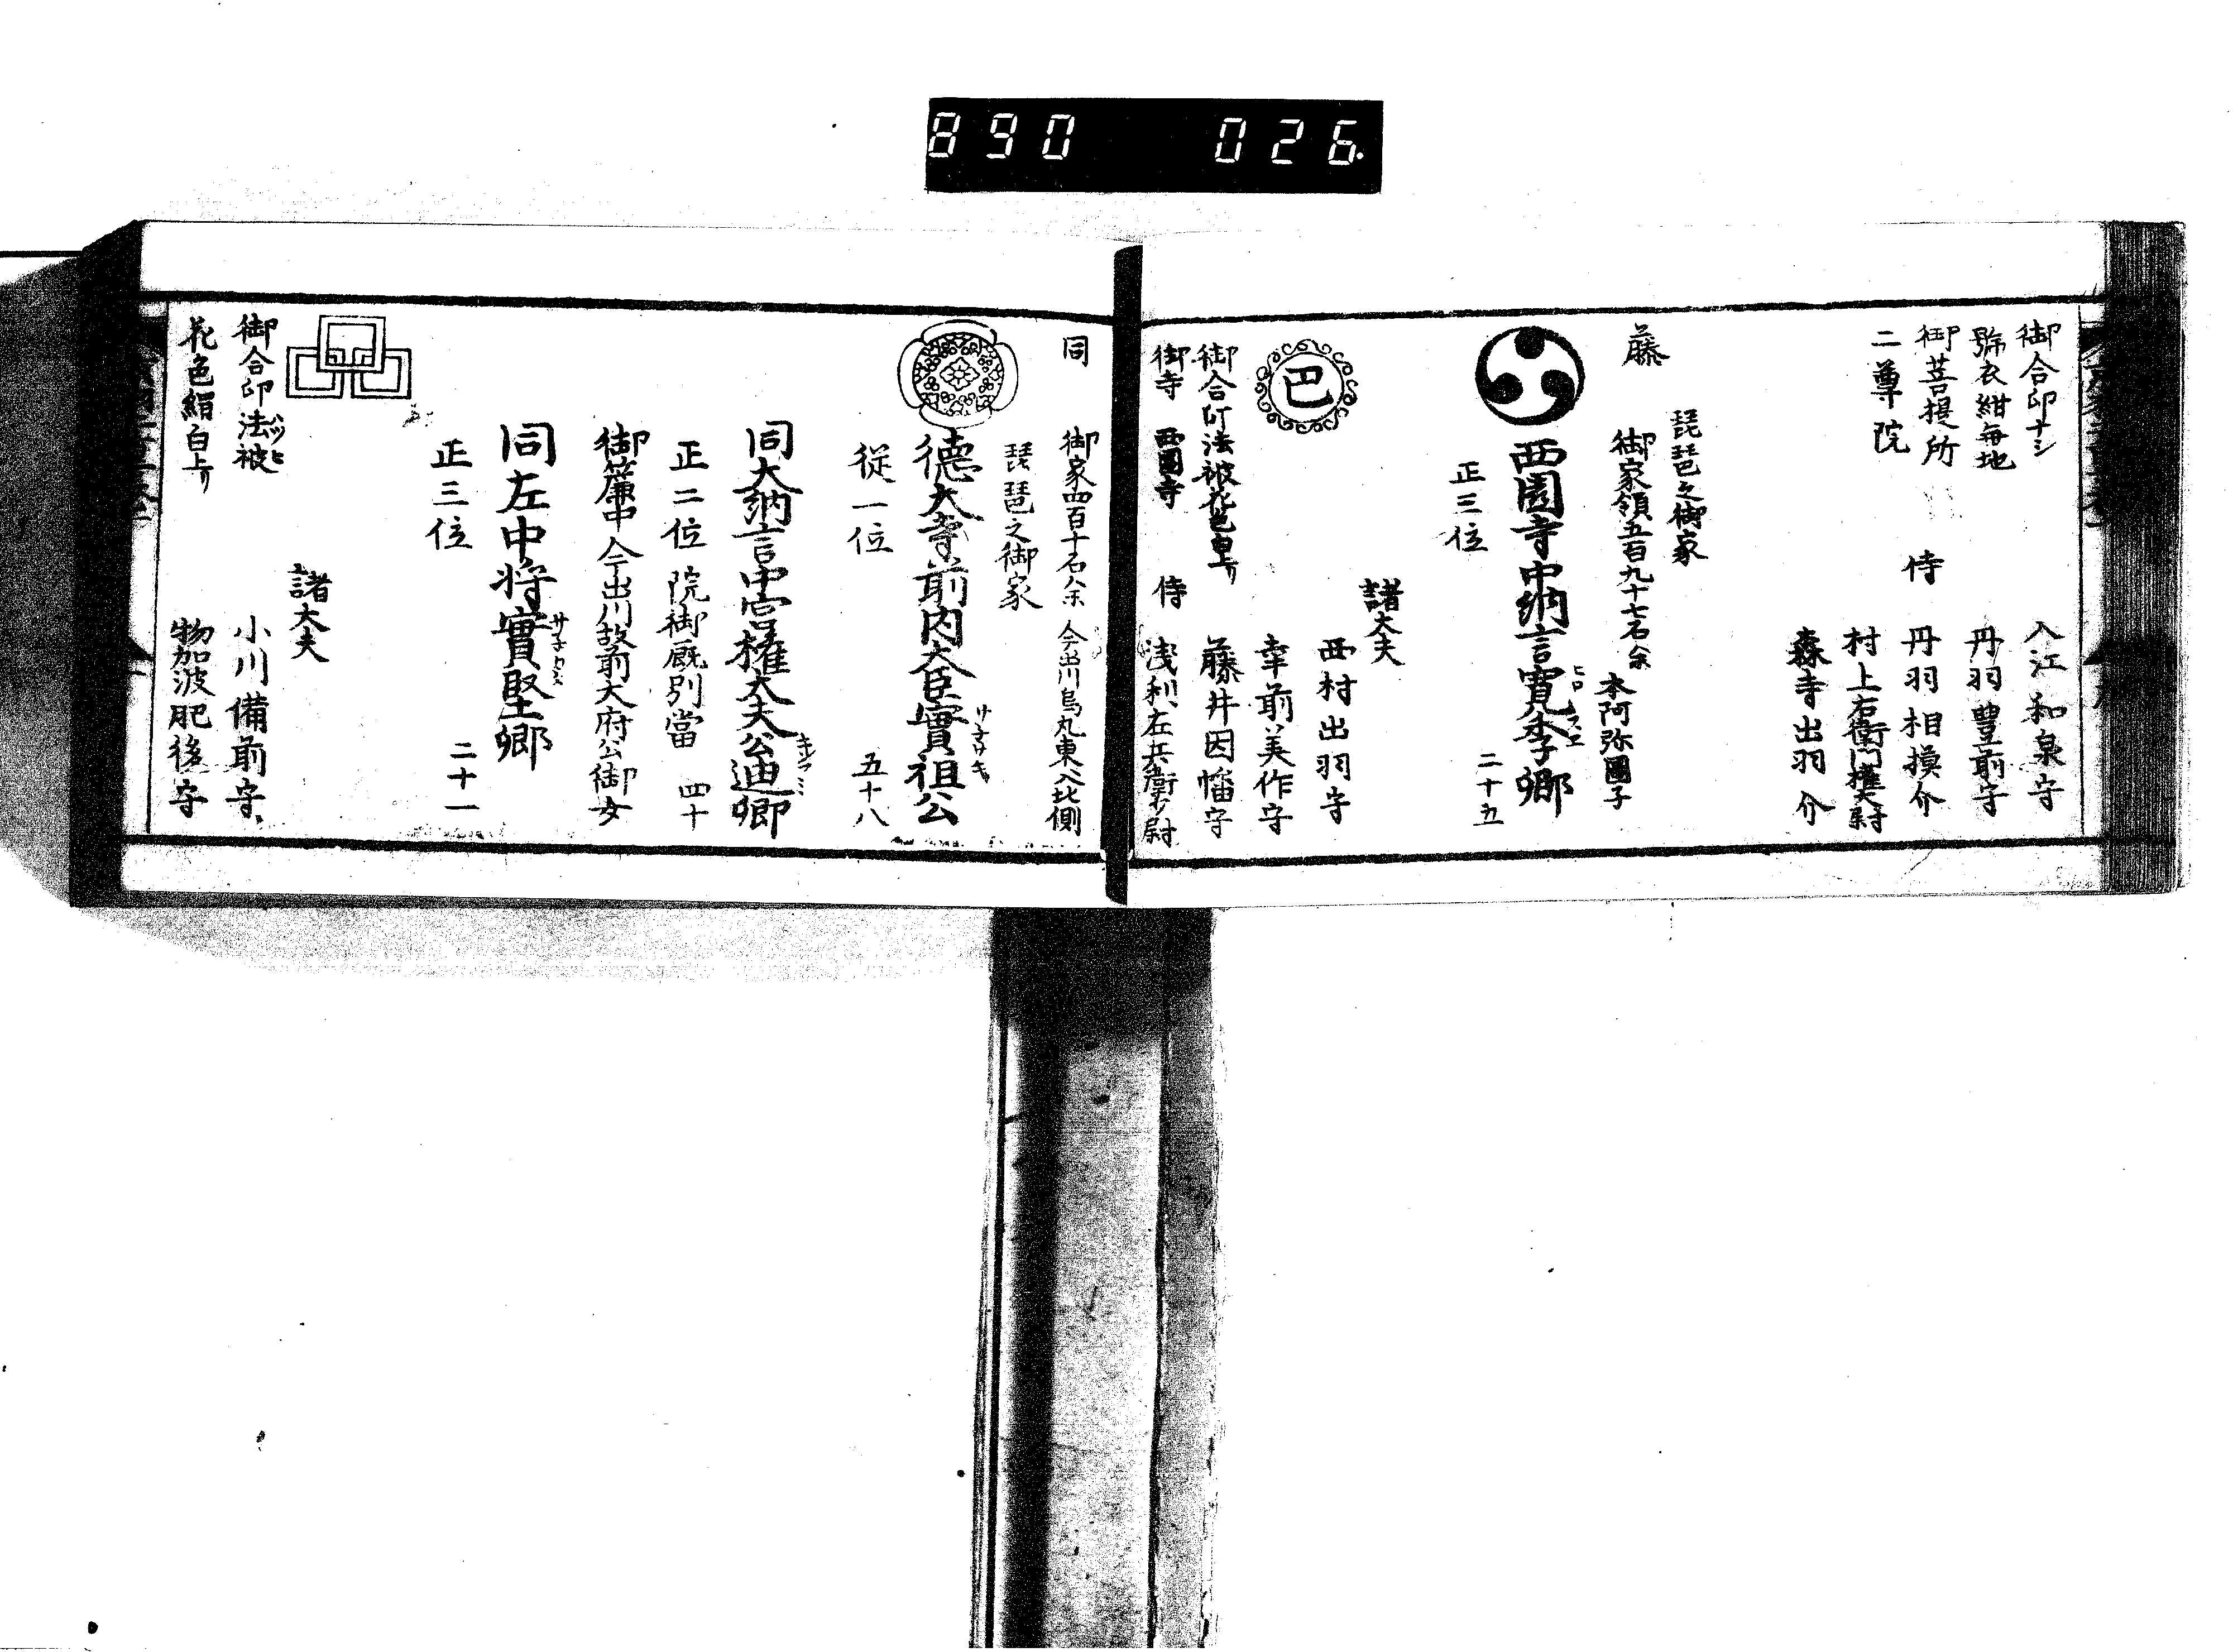 890 026.
御合印ナシ
入江和泉守
號衣紺無地
丹羽豊前守
御菩提所
侍
丹羽相摸介
二尊院
村上右衛門権大尉
森寺出羽介
藤
琵琶之御家
御家領五百九十七石余
本阿弥圖子
西園寺中納言寛季卿
ヒロスエ
正三位
二十五
諸大夫
西村出羽守
巴
幸前美作守
御合印法被花色白上リ
藤井因幡守
御寺 西園寺
侍
浅利左兵衛少尉
同
御家四百十石余
今出川烏丸東入北側
琵琶之御家
德大寺前内大臣實祖公
サネサキ
従一位
五十八
同大納言中宮権大夫公迪卿
キンアミ
正二位
院御厩別當
四十
御簾中今出川故前大府公御女
同左中将實堅卿
サネカタ
正三位
二十一
諸大夫
御合印法被
ハツヒ
小川備前守
花色絹白上リ
物加波肥後守